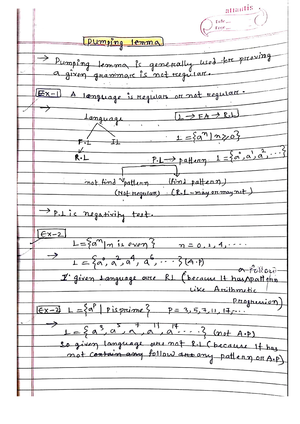 atlantis
Date
Page
Pumping lemma
→ Pumping lemma is generally used for proving
a given grammar is not regular.
Ex-1 A language is regular or not regular.
→ language L → FA → R.L
F.L IL L = {aⁿ | n ≥ 0}
↓
R.L P.L → pattern L = {a⁰, a¹, a², ...}
not find pattern (find pattern)
(Not regular) (R.L - may or may not.)
→ P.L is negativity test.
Ex-2
L = {aⁿ | n is even} n = 0, 2, 4, ....
→ L = {a⁰, a², a⁴, a⁶, ....} (A.P)
a follow
given language are R.L (because It has pattern
like Arithmetic
Progression)
L = {aᵖ | P is prime} P = 3, 5, 7, 11, 17, ...
→ L = {a³, a⁵, a⁷, a¹¹, a¹⁷ ....} (not A.P)
So given language are not R.L (because It has
not follow any pattern or A.P)